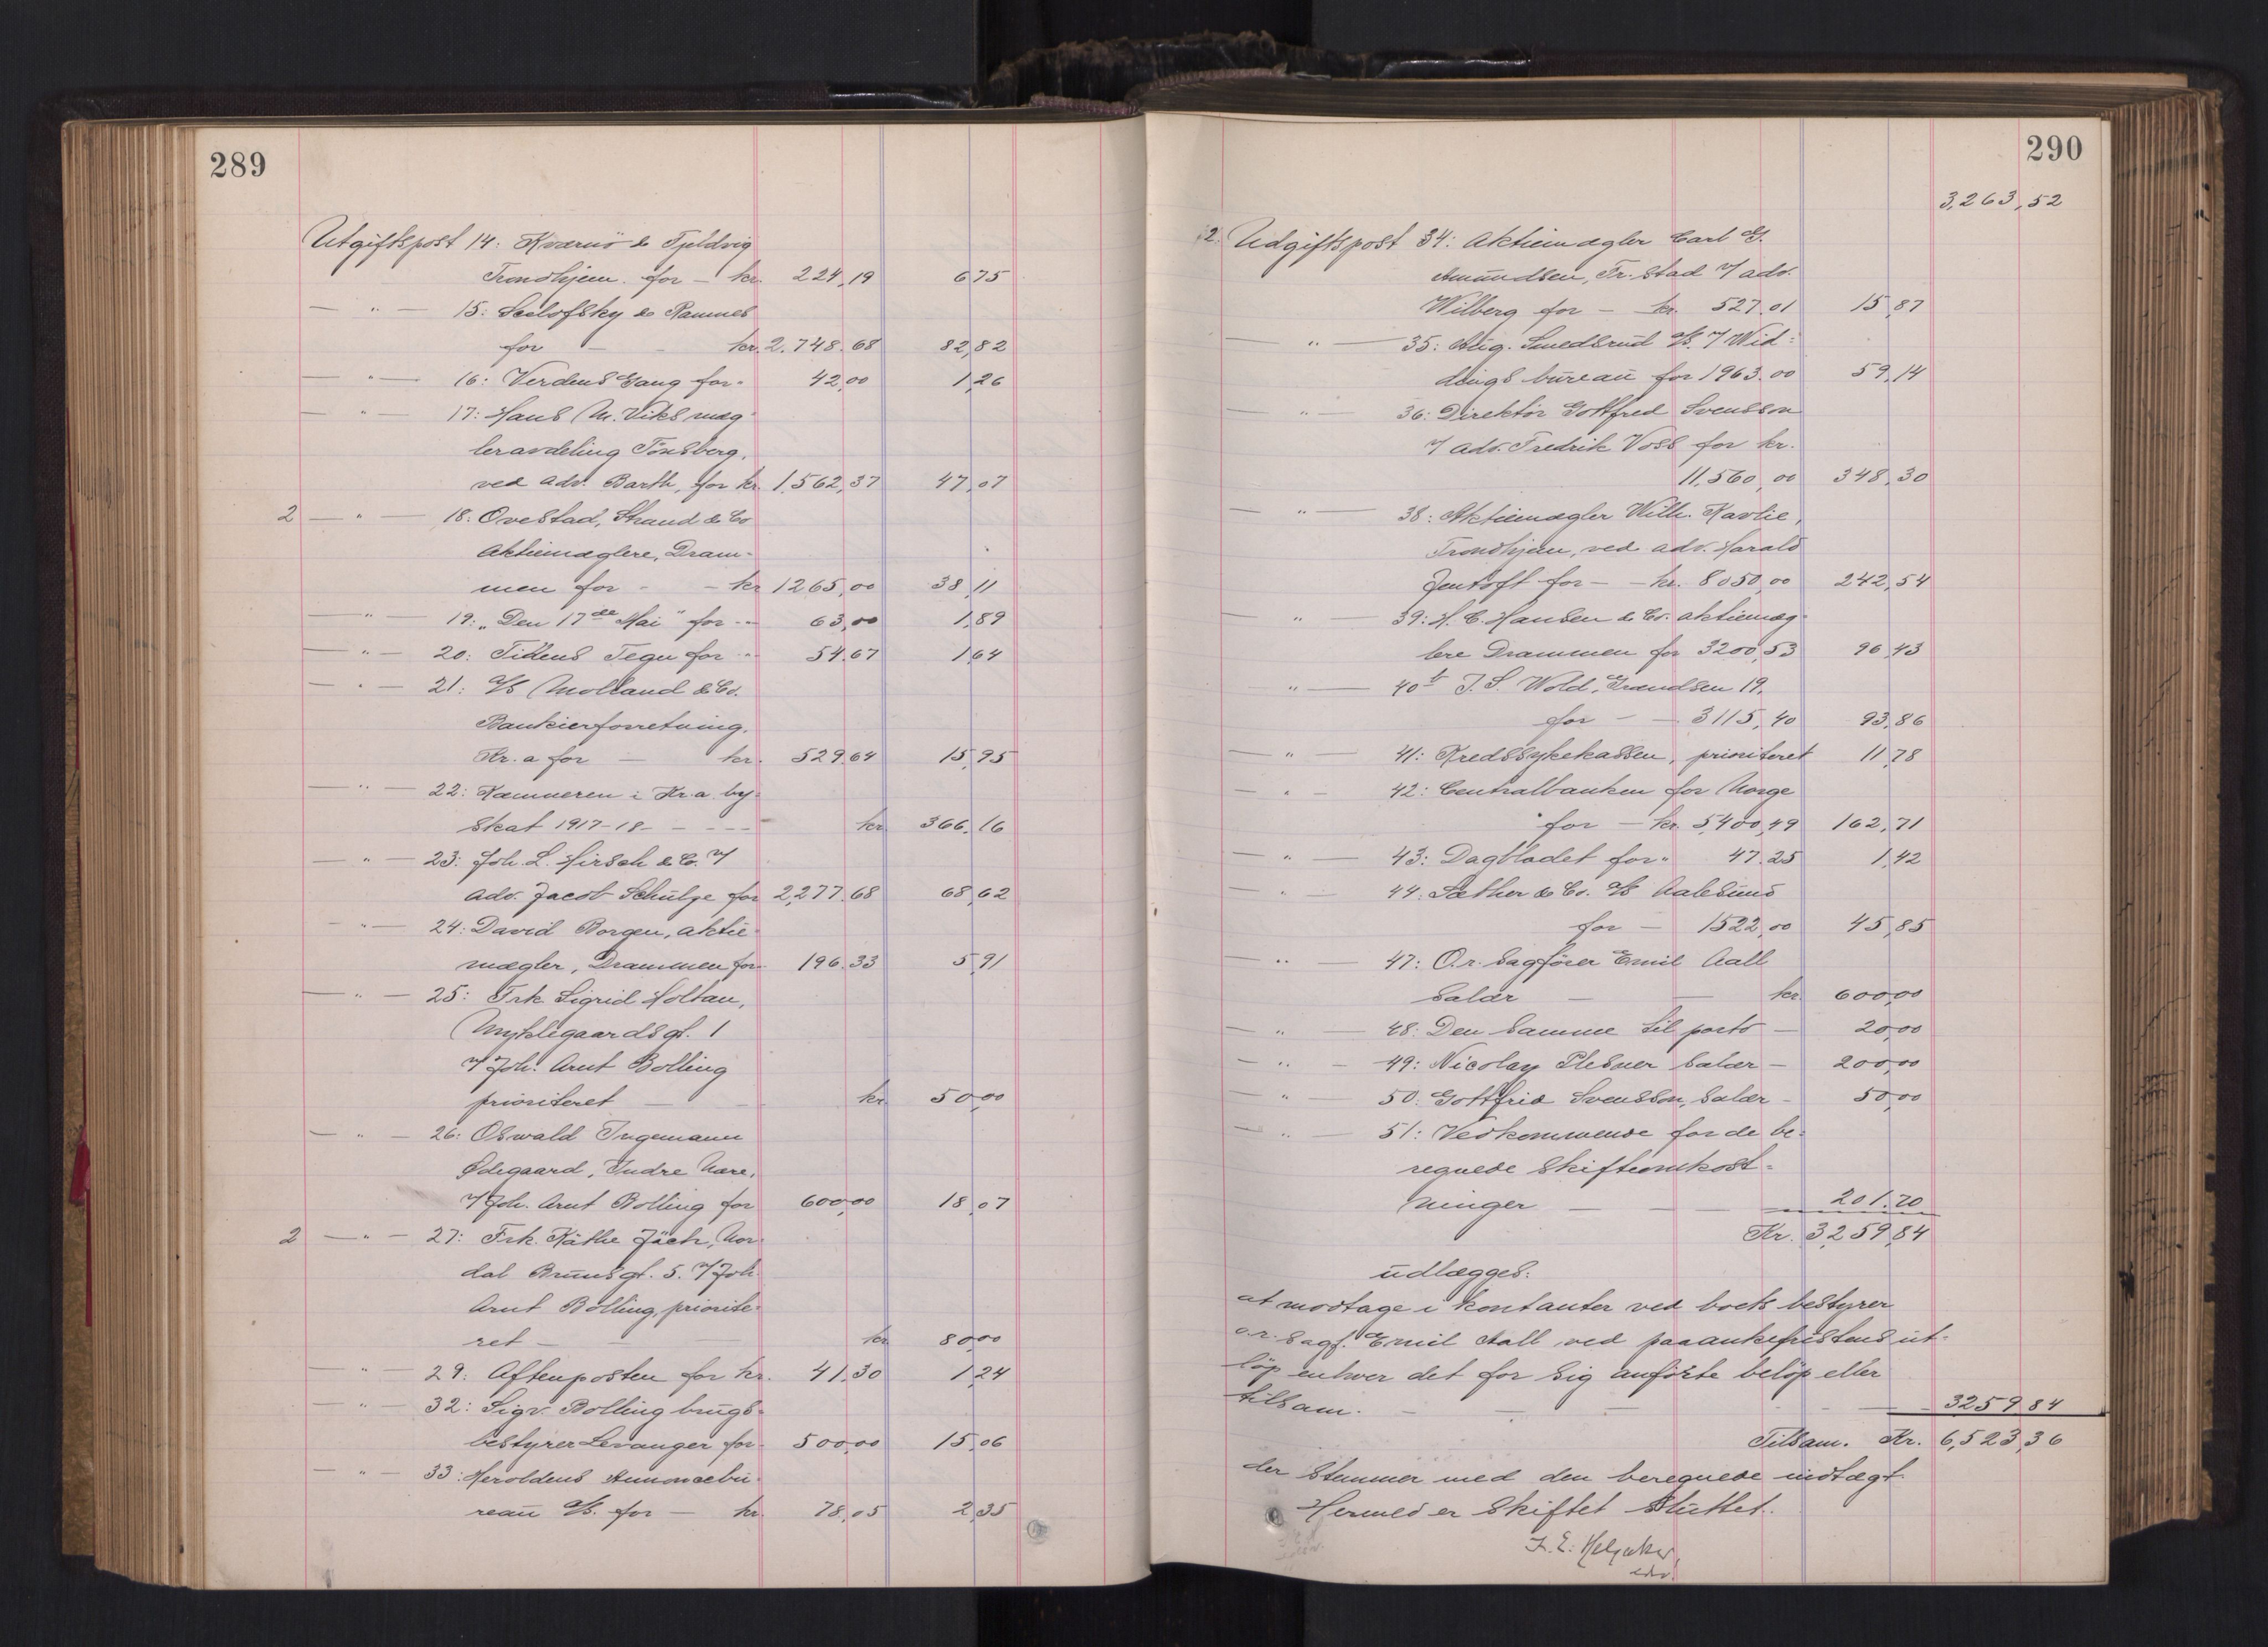 289
Utgiftspost 14: Kværnö & Tjeldvig
Trondhjem. for - kr. 224,19 6 75
— " — 15: Seelofsky & Ramnes
for - - kr. 2.748.68 82,82
— " — 16: Verdens Gang for " 42,00 1,26
— " — 17: Hans M. Viks mæg-
leravdeling Tönsberg,
ved adv. Barth, for kr. 1,562,37 47,07
2 — " — 18: Ovestad, Strand & Co
Aktiemæglere, Dram-
men for - - kr 1265,00 38,11
— " — 19: „Den 17de Mai" for - - 63,00 1,89
— " — 20: Tidens Tegn for - 54.67 1,64
— " — 21: A/S Molland & Co.
Bankierforretning,
Kr.a for — kr. 529,64 15,95
— " — 22: Kæmneren i Kr.a by-
skat 1917-18 - - - - kr. 366,16
— " — 23: Joh. L. Hirsch & C. v/
adv. Jacob Schulze for 2,277.68 68,62
— " — 24: David Borgen, aktie
mægler, Drammen for 196.33 5,91
— " — 25: Frk Sigrid Holtan,
Myklegaardsgt. 1
v/ Joh. Arnt Bolling
prioriteret — - kr. 50,00
— " — 26: Oswald Ingemann
Ødegaard, Indre Nare,
v/ Joh. Arnt Bolling for 600,00 18,07
2 — " — 27: Frk. Käthe Jäch, Nor-
dal Brunsgt. 5. v/ Joh.
Arnt Bolling, priorite-
ret - — kr. 80,00
— " — 29: Aftenposten for kr. 41.30 1,24
— " — 32: Sigv. Bolling brugs-
bestyrer Levanger for 500,00 15,06
— " — 33: Heroldens Annoncebu-
reau A/S. for — kr. 78,05 2,35
290
3,263,52
2. Udgiftspost 34: Aktiemægler Carl G.
Amundsen, Fr.stad v/ adv.
Wilberg for - kr. 527.01 15,87
— " — 35: Aug. Smedsrud A/S. v/ Wid-
dings bureau for 1963.00 59,14
— " — 36: Direktör Gottfred Svensson
v/ adv. Fredrik Voss for kr.
11.560,00 348,30
— " — 38: Aktiemægler Wilh. Kavlie,
Trondhjem, ved adv. Harald
Jentoft for — kr. 8050,00 242,54
— " — 39: H. C. Hansen & Co. aktiemæg-
lere Drammen for 3200,53 96,43
" — 40 b J. S. Wold, Grændsen 19,
for - - 3115,40 93,86
— " — 41: Kredssykekassen, prioriteret 11,78
— " — 42: Centralbanken for Norge
for - kr. 5,400,49 162,71
— " — 43: Dagbladet for " 47.25 1,42
— " — 44: Sæther & Co. A/S Aalesund
for - 1522,00 45,85
— " — 47: O.r. sagförer Emil Aall
Salær — — kr. 600,00
— " — 48: Den samme til porto — 20,00
— " — 49: Nicolay Plesner Salær — 200,00
— " — 50: Gottfrid Svensson, Salær - 50,00
— " — 51: Vedkommende for de be-
regnede Skifteomkost-
ninger — — — 201.70
Kr. 3,259,84
udlægges:
at modtage i kontanter ved boets bestyrer
o.r. sagf. Emil Aall ved paaankefristens ut-
löp enhver det for sig anförte belöp eller
tilsam. — — — 3259 84
Tilsam. Kr. 6,523,36
der stemmer med den beregnede indtægt.
Hermed er Skiftet sluttet.